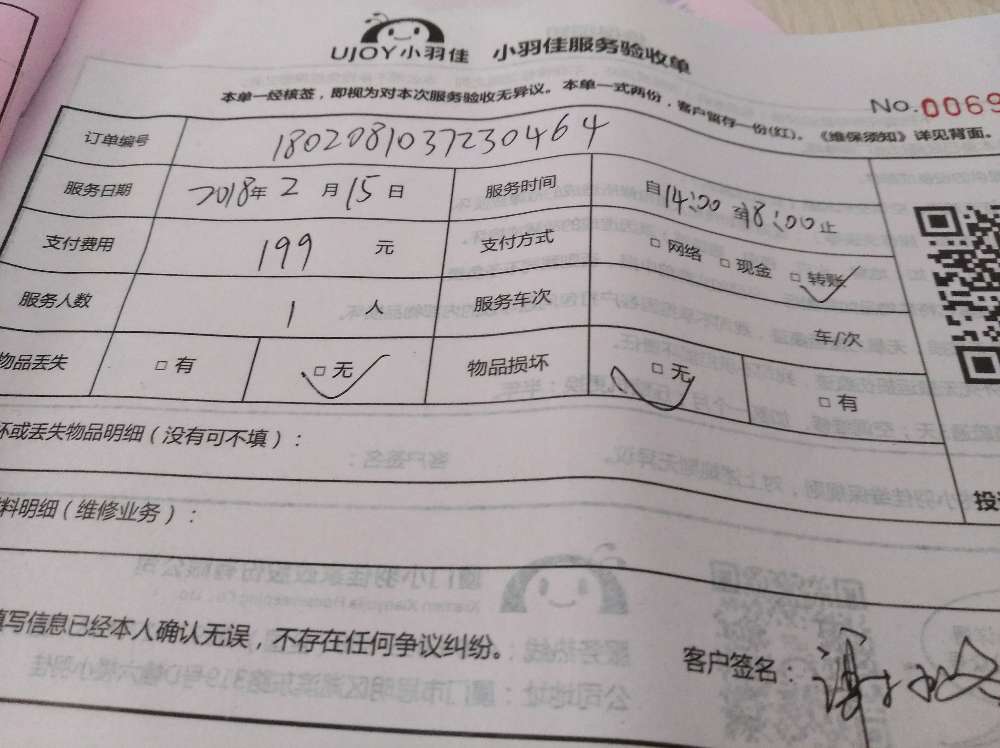 UJOY小羽佳 小羽佳服务验收单
本单一经核签，即视为对本次服务验收无异议。本单一式两份，客户留存一份(红)。《维保须知》详见背面。
No.0069
订单编号 180208103723046​4
服务日期 2018年2月15日 服务时间 自14:00至18:00止
支付费用 199 元 支付方式 □网络 □现金 □转账
服务人数 1 人 服务车次 车/次
物品丢失 □有 □无 物品损坏 □无 □有
坏或丢失物品明细（没有可不填）：
料明细（维修业务）：
填写信息已经本人确认无误，不存在任何争议纠纷。
客户签名：